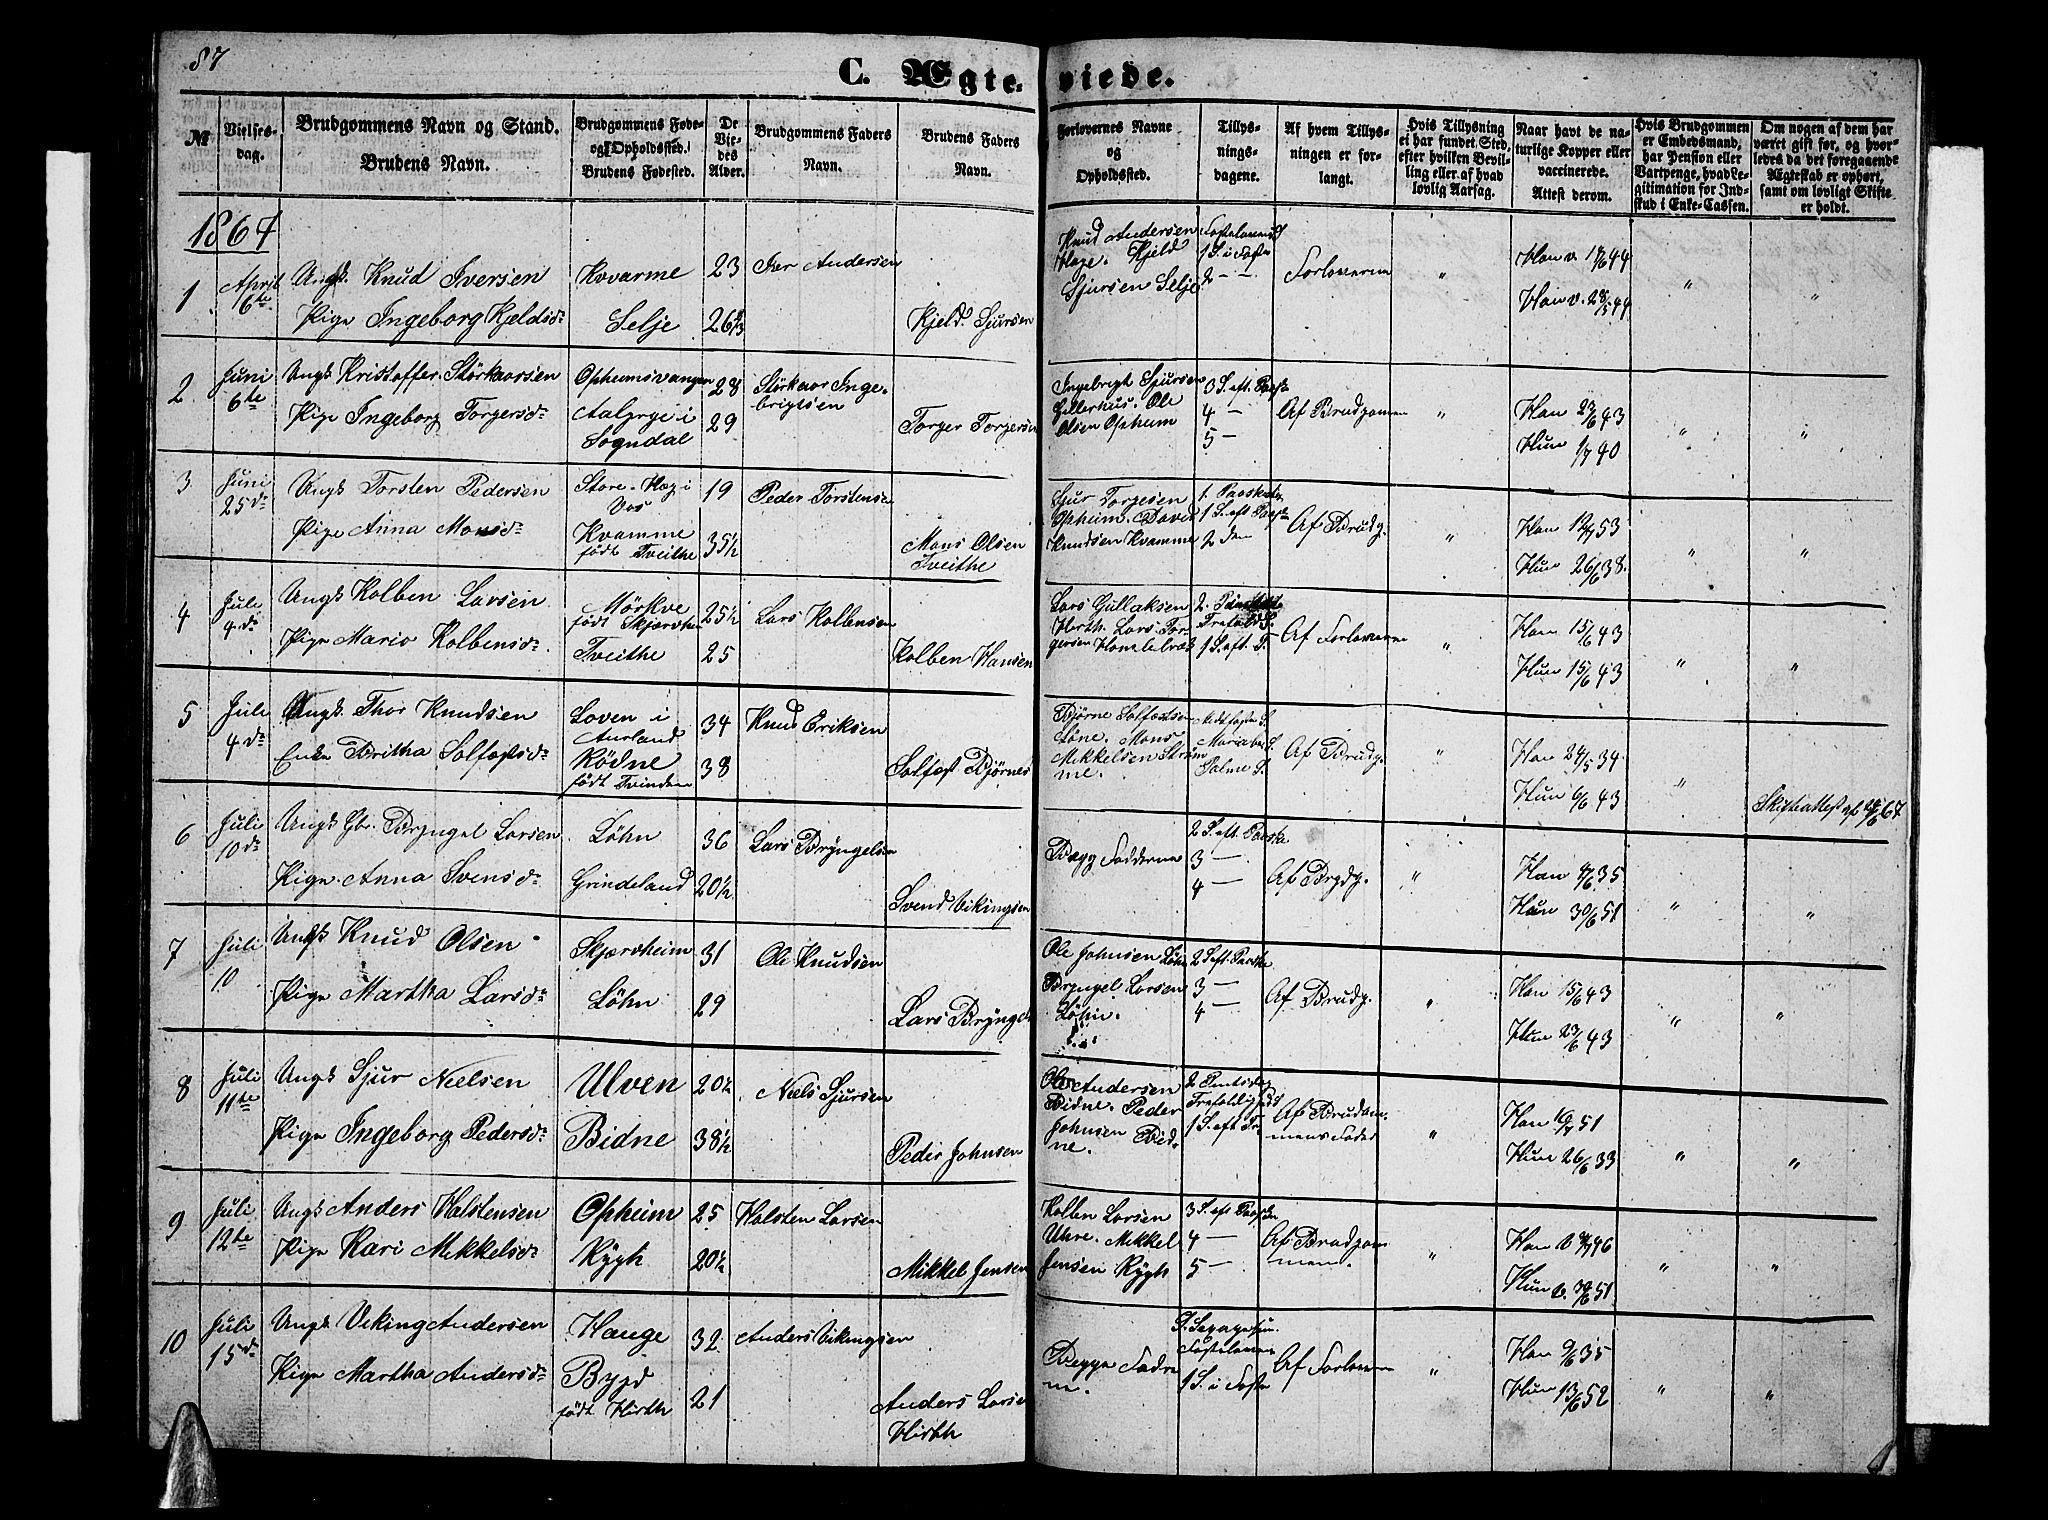 87
C. Ægteviede.
№
Vielses-
dag.
Brudgommens Navn og Stand.
Brudens Navn.
Brudgommens Føde-
og Opholdssted.
Brudens Fødested.
De
Vie-
des
Alder.
Brudgommens Faders
Navn.
Brudens Faders
Navn.
Forlovernes Navne
og
Opholdssted.
Tillys-
nings-
dagene.
Af hvem Tillys-
ningen er for-
langt.
Hvis Tillysning
ei har fundet Sted,
efter hvilken Bevil-
ling eller af hvad
lovlig Aarsag.
Naar havt de na-
turlige Kopper eller
vaccinerede.
Attest derom.
Hvis Brudgommen
er Embedsmand,
har Pension eller
Vartpenge, hvad Le-
gitimation for Ind-
skud i Enke-Cassen.
Om nogen af dem har
været gift før, og hvor-
ledes da det foregaaende
Ægteskab er ophørt,
samt om lovligt Skifte
er holdt.
1867
1 April 6te
Ungk. Knud Iversen
Pige Ingeborg Kjeldsd.
Kvarme
Selje
23
26
Iver Andersen
Kjeld Sjursen
Knud Andersen
Hage. Kjeld
Sjursen Selje
1 S. i Faste
2 — —
Forloverne
"
Han v. 44
Han v. 44
"
"
2 Juni 6te
Ungk Kristoffer Störkaarsen
Pige Ingeborg Torgersd.
Opheimsvangen
Aalgrye i
Sogndal
28
29
Störkaar Inge-
brigtsen
Torger Torgersen
Ingebrigt Sjursen
Gillerhus. Ole
Olsen Opheim
3 S. eft. Paaske
4 —
5 —
Af Brudgomen
"
Han 23/6 43
Hun 1/7 40
"
"
3 Juni 25de
Ungk Torsten Pedersen
Pige Anna Monsd.
Store-Hæg i
Vos
Kvamme
født Tveithe
19
35½
Peder Torstense
Mons Olsen
Tveithe
Sjur Torgesen
Opheim. David
Knudsen Kvamme
1. Paaskedag
1 S. eft Paaske
2 den
Af Brudg.
"
Han 53
Hun 26/6 38.
"
"
4 Juli 4de
Ungk Kolben Larsen
Pige Mario Kolbensd.
Mørkve
født Skjærvhei
Tveithe
25½
25
Lars Kolbensen
Kolben Hansen
Lars Gullaksen
Hirth. Lars Tor-
gersen Homlebræk
Trefold S.
1 S. eft. T.
Af Forloverne
"
Han 15/6 43
Hun 15/6 43
"
"
5 Juli 4de
Ungk. Thor Knudsen
Enke Britha Solfestsd.
Loven i
Aurland
Rödne
født Tvinden
34
38
Knud Eriksen
Solfest Bjørnes
Bjørne Solfestsen
Løne. Mons
Mikkelsen
Palme S.
Af Brudg.
"
Han 24/5 34.
Hun 6/6 43
"
Skifteattest af 67
6 Juli 10de
Ungk Gbr. Bryngel Larsen
Pige Anna Svensd.
Løhn
Grindeland
36
20½
Lars Bryngelsen
Svend Vikingsen
Begg Fadderne
2 S. eft. Paaske
3 —
4 —
Af Brydg.
"
Han 35
Hun 30/6 51
"
"
7 Juli 10
Ungk Knud Olsen
Pige Martha Larsd.
Skjærvheim
Løhn
31
29
Ole Knudsen
Lars Bryngels
Ole Johnsen Løhn
Bryngel Larsen
Løhn.
2 S. eft. Paaske
3 —
4 —
Af Brudg.
"
Han 15/6 43
Hun 23/6 43
"
"
8 Juli 11te
Ungk Sjur Nielsen
Pige Ingeborg Pedersd.
Ulven
Bidne
20½
38½
Niels Sjursen
Peder Johnsen
Ole Andersen
Bidne. Peder
Johnsen Bid-
ne.
2 Pintsdag
Trefoldigheds
1 S. eft Tr.
Af Brudgom-
mens Fader
"
Han 51
Hun 26/6 33
"
"
9 Juli 12te
Ungk Anders Halstensen
Pige Kari Mikkelsd.
Opheim
Rygh
25
20½
Halsten Larsen
Mikkel Jensen
Kolben Larsen
Uhre. Mikkel
Jensen Rygh
3 S. eft Paaske
4 —
5 —
Af Brudgom
men.
"
Han v. 46
Hun v. 30/6 51.
"
"
10 Juli 15de
Ungk. Viking Andersen
Pige Martha Andersd.
Hauge
Bygd
født Hirth
32
21
Anders Vikingsen
Anders Larsen
Hirth
Begge Fadre
ne.
Fastelaven
1 S. i Faste
Af Forloveren
"
Han 9/6 35
Hun 13/6 52
"
"